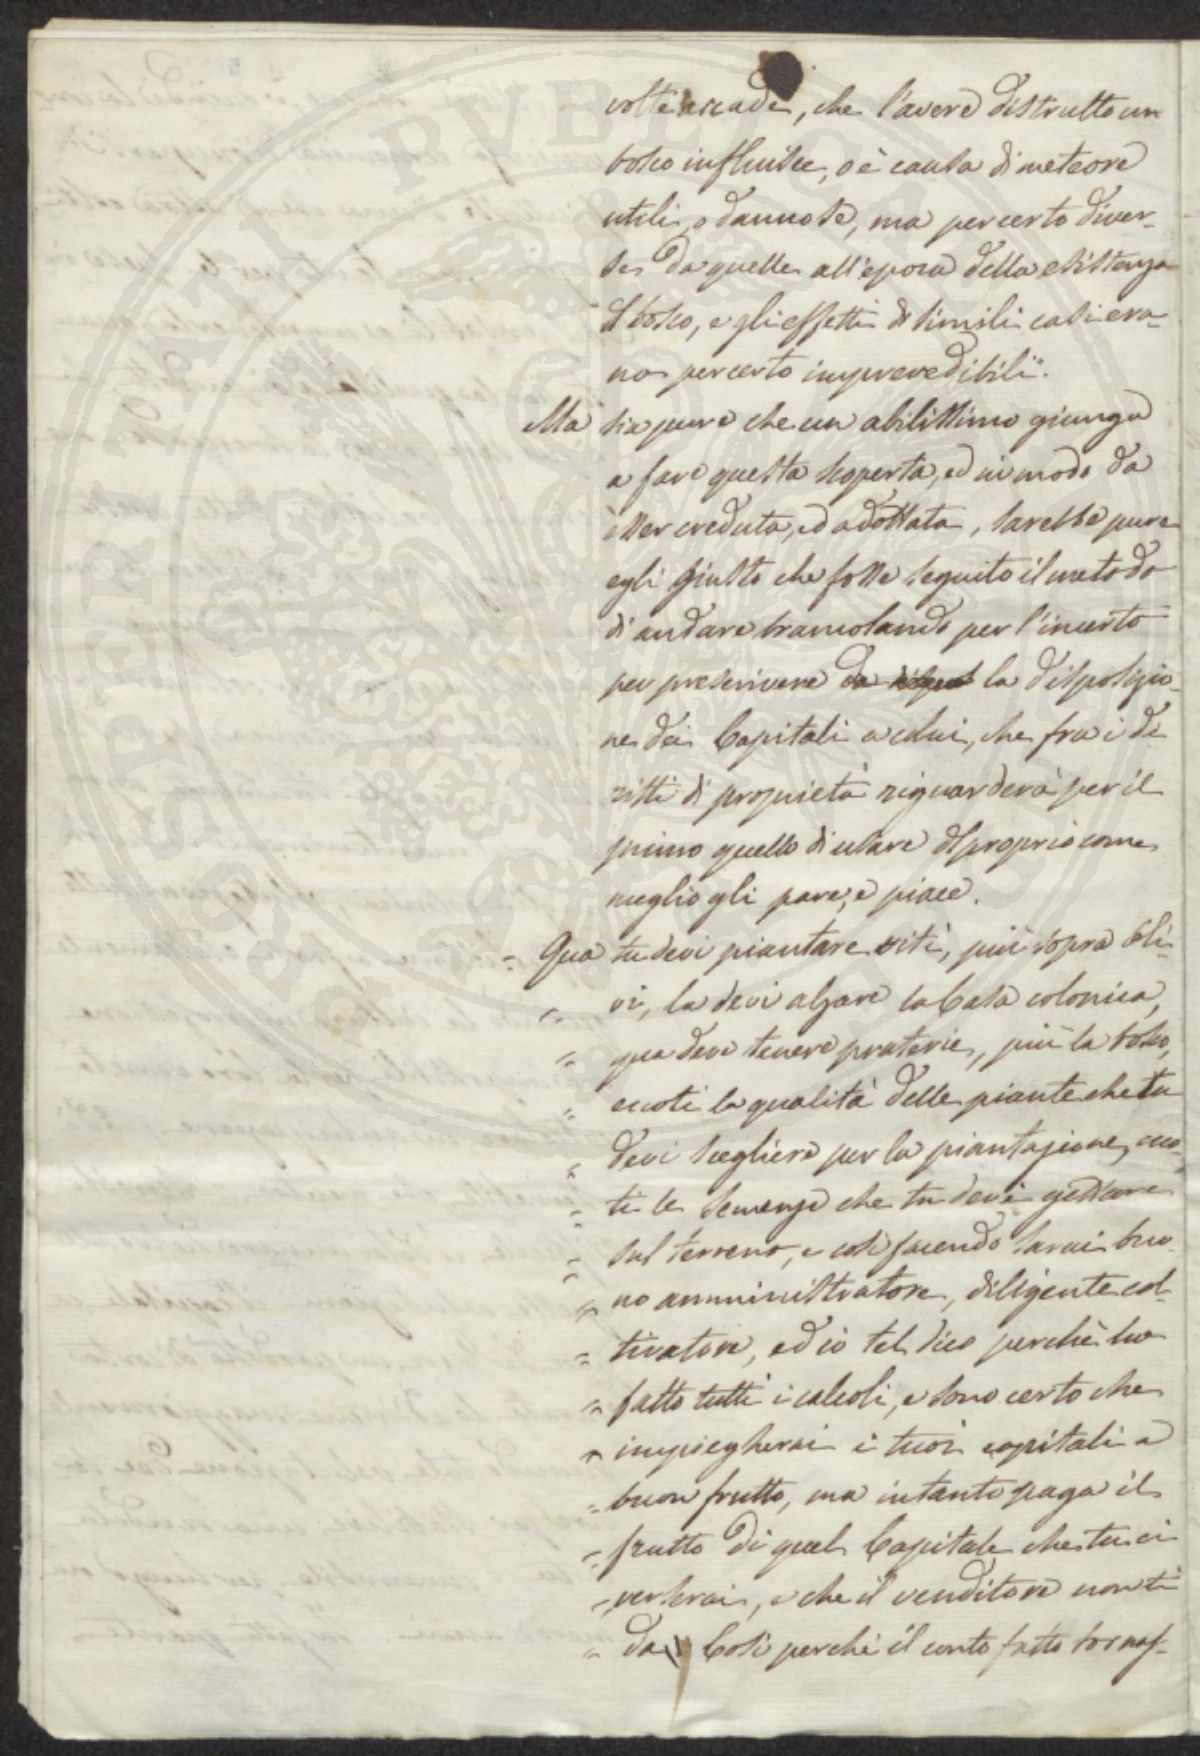 volte accade, che l'avere distrutto un
bosco influisce, o è causa di meteore
utili, o dannose, ma percerto diver-
se da quelle all'epoca della esistenza
del bosco, e gli effetti di simili casi era-
no percerto imprevedibili.
Ma sia pure che un abilissimo giunga
a fare questa scoperta, ed in modo da
esser creduta, ed adottata, sarebbe pure
egli giusto che fosse seguito il metodo
di andare brancolando per l'incerto
per prescrivere la disposizio-
ne dei Capitali a colui, che fra i di
ritti di proprietà riguarderà per il
primo quello di usare del proprio come
meglio gli pare, e piace.
= Qua tu devi piantare viti, più sopra Oli-
= vi, la devi alzare la Casa colonica,
= qua devi tenere praterie, più la bosco,
= eccoti la qualità delle piante che tu
= devi scegliere per la piantazione, ecco-
= ti le semenze che tu devi gettare
= sul terreno, e così facendo sarai buo-
= no amministratore, diligente col-
= tivatore, ed io tel dico perchè ho
= fatto tutti i calcoli, e sono certo che
= impiegherai i tuoi capitali a
= buon frutto, ma intanto paga il
= frutto di quel Capitale che tu ci
= verserai, e che il venditore non ti
= da \\ Così perchè il conto fatto tornas-
PROSPERITATI PVBLICAE